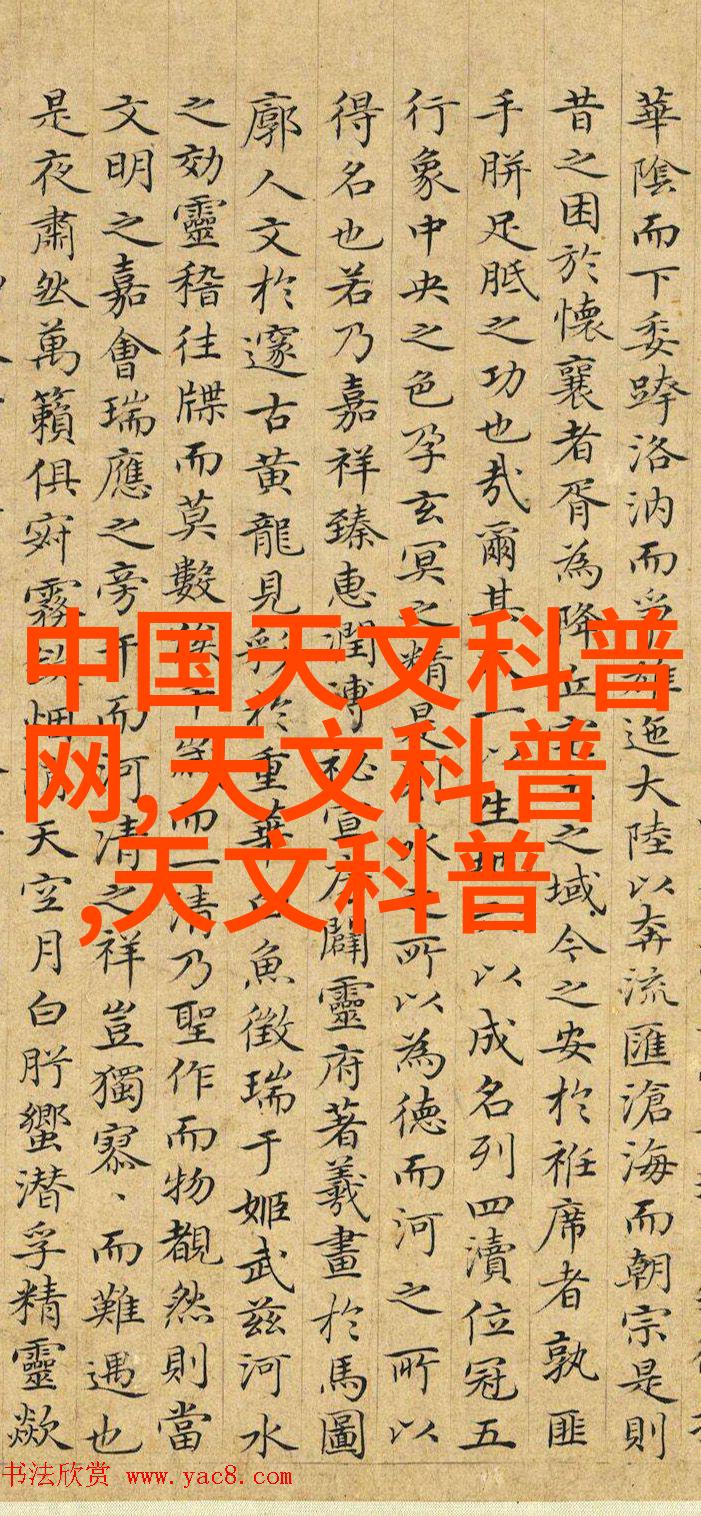 華陰而下委跨洛汭而爭雄迤大陸以奔流匯滄海而朝宗是則
昔之困於懷襄者胥為降丘宅土之域今之安於袵席者孰匪
手胼足胝之功也哉爾其一以生以成名列四瀆位冠五
行象中央之色孕玄冥之精是水之所以為德而河之所以
得名也若乃嘉祥臻惠潤溥祕宣府闢靈府著羲畫於馬圖
廓人文於邃古黃龍見彩於重華白魚徵瑞于姬武茲河水
之効靈稽往牒而莫數俟千歲而一清乃聖作而物覩然則當
文明之嘉會瑞應之旁午而河清之祥豈獨寥、而難遇也
是夜肅然萬籟俱寂霧斂烟消天空月白肸蠁潛孚精靈歘
中国天文科普
网,天文科普
,天文科普
书法欣赏 www.yac8.com